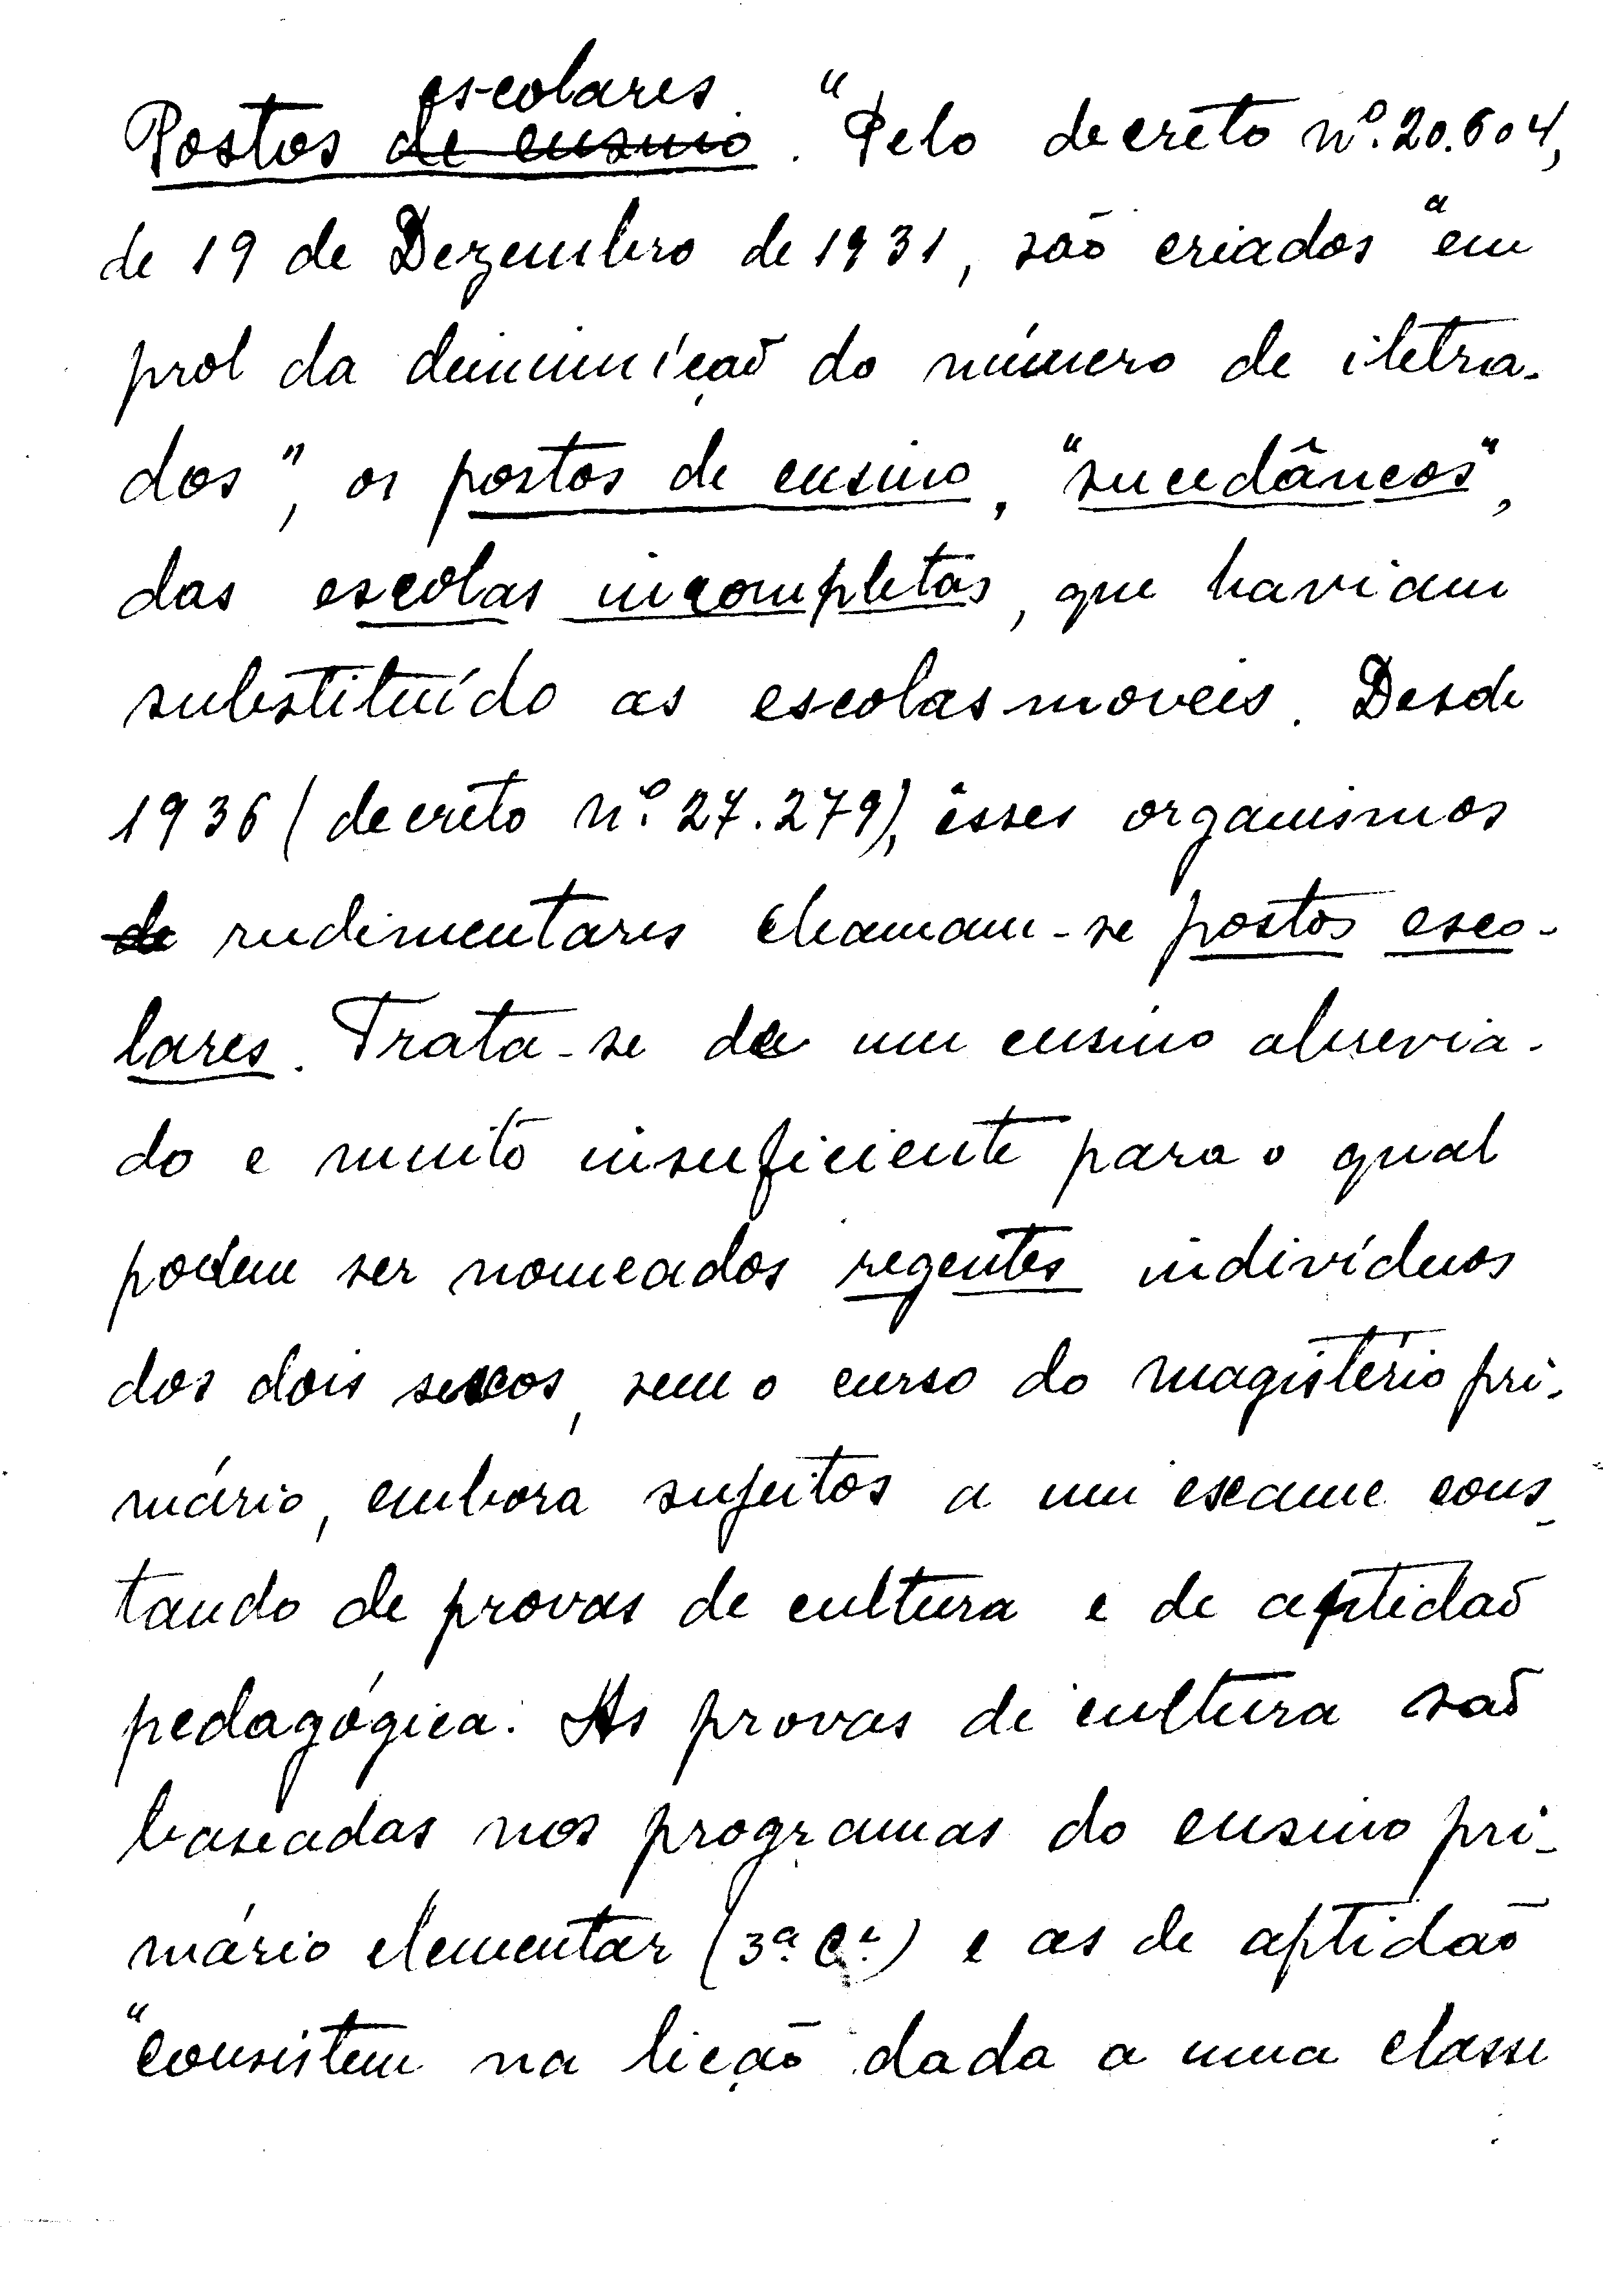 escolares
Postos de ensino. "Pelo decreto nº. 20.604,
de 19 de Dezembro de 1931, são criados "em
prol da diminuïção do número de iletra-
dos", os postos de ensino, "sucedâneos",
das escolas incompletas, que haviam
substituído as escolas moveis. Desde
1936 (decreto nº. 27.279), êsses organismos
de rudimentares chamam-se postos esco-
lares. Trata-se de um ensino abrevia-
do e muito insuficiente para o qual
podem ser nomeados regentes indivíduos
dos dois sexos, sem o curso do magistério pri-
mário, embora sujeitos a um exame cons-
tando de provas de cultura e de aptidão
pedagógica. As provas de cultura são
baseadas nos programas do ensino pri-
mário elementar (3ª cl.) e as de aptidão
"consistem na lição dada a uma classe